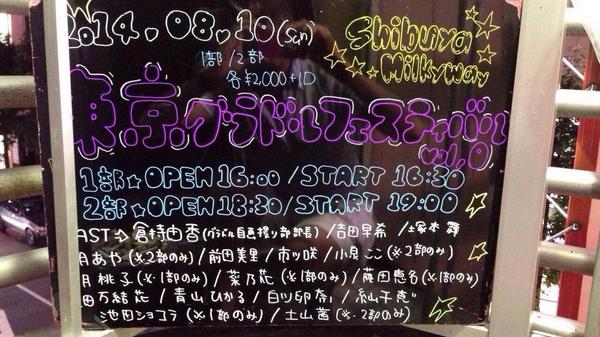 2014.08.10(sun)
Shibuya
Milkyway
1部/2部
各¥2,000+1D
東京グラドルフェスティバル
vol.0
1部☆OPEN 16:00/START 16:30
2部☆OPEN 18:30/START 19:00
AST⇒倉持由香(グラドル自画撮り部部長)/吉田早希/塚本舞
月あや(※2部のみ)/前田美里/市ヶ咲/小見ここ(※2部のみ)
月桃子(※1部のみ)/菜乃花(※1部のみ)/藤田恵名(※1部のみ)
田万結花/青山ひかる/白川卯奈/紺野恵
池田ショコラ(※1部のみ)/土山茜(※2部のみ)